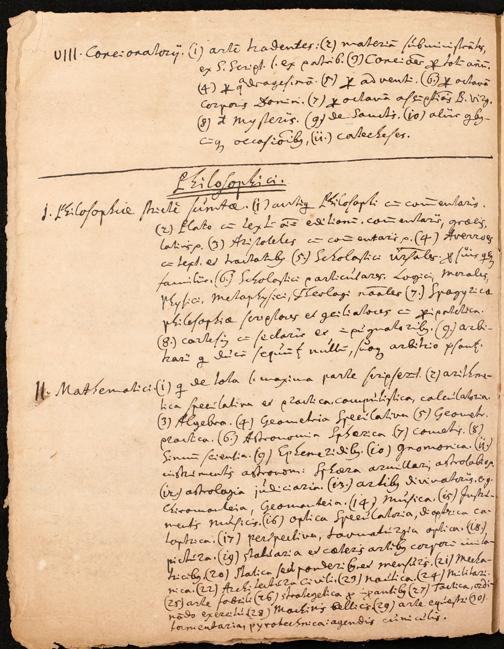 VIII. Concionatorij. (1) artē tradentes: (2) materiā subministrātes,
ex S. Script. l. ex patrib. (3) Conciões ꝑ totū annū.
(4) ꝑ qdragesimā. (5) ꝑ adventū. (6) ꝑ octavā
Corporis Domini. (7) ꝑ octavā B. Virg.
(8) d Mysterijs. (9) de Sanctis. (10) alijs
occasiōib, (11.) catecheses.
Philosophici.
I. Philosophiæ strictè sumtæ. (1) antiq Philosophi cū cōmentarijs.
(2) Plato cū text. editionū. cōmentarijs, græcis,
latinisq. (3) Aristoteles cū cōmentarijs. (4) Averroes
cū text. et tractatib (5) Scholastici ꝑ suas
familias. (6.) Scholastici particulares. Logici, Morales,
Physici, Metaphysici, Theologi nāales (7.) Spagyricæ
philosophiæ scriptores et
(8.) Cartesiⁱ cū sectarijs et īpugnatorib. (9) arbi-
trarij q ducē sequunt nullū, arbitrio
II. Mathematici. (1) q de tota l. maxima parte scripserūt (2) arithme-
tica speculativa et practica. computistica, calculatoria.
(3) Algebra. (4) Geometria Speculativa (5) Geometr.
practica. (6) Astronomia Sphærica (7) cometis. (8)
Sinuū scientia. (9) Ephemeridib. (10) gnomonica. (11)
instrumentis astronom: Sphæra armillari, astrolabio
(12) astrologia judiciaria. (13.) artib divinatorijs. e.g.
Chiromanteia, Geomanteia. (14) Musica. (15) Instru-
mentis musicis. (16) optica Speculatoria, dioptrica ca-
toptrica. (17) perspectiva, thavmatürgia optica. (18)
pictura. (19) statuaria et cæteris artib corporū imita-
tricib, (20) statica seu ponderib, et mensuris. (21) Mecha-
nica. (22) Architectura Civili. (23) nautica. (24) Militari.
(25) arte fossili (26) strategetica ꝑ (27) Tactica, ordi-
nādo exercitū (28) Machinis bellicis (29) arte equestri (30).
tormentaria, pyrotechnica: agendis cuniculis.